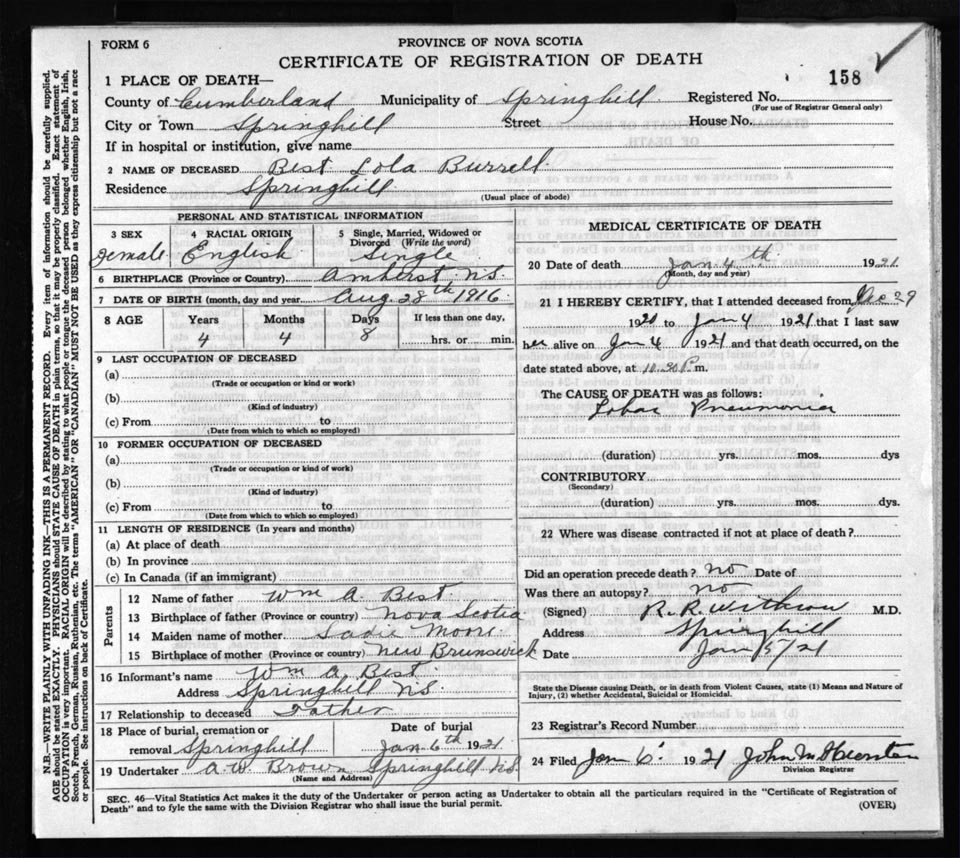 FORM 6
PROVINCE OF NOVA SCOTIA
CERTIFICATE OF REGISTRATION OF DEATH
158
1 PLACE OF DEATH—
County of Cumberland Municipality of Springhill Registered No.
(For use of Registrar General only)
City or Town Springhill Street House No.
If in hospital or institution, give name
2 NAME OF DECEASED Best Lola Burrell
Residence Springhill
(Usual place of abode)
PERSONAL AND STATISTICAL INFORMATION
3 SEX 4 RACIAL ORIGIN 5 Single, Married, Widowed or
Divorced (Write the word)
Female English Single
6 BIRTHPLACE (Province or Country) Amherst N.S.
7 DATE OF BIRTH (month, day and year) Aug 28th 1916
8 AGE Years Months Days If less than one day,
4 4 8 hrs. or min.
9 LAST OCCUPATION OF DECEASED
(a)
(Trade or occupation or kind or work)
(b)
(Kind of industry)
(c) From to
(Date from which to which so employed)
10 FORMER OCCUPATION OF DECEASED
(a)
(Trade or occupation or kind of work)
(b)
(Kind of industry)
(c) From to
(Date from which to which so employed)
11 LENGTH OF RESIDENCE (In years and months)
(a) At place of death
(b) In province
(c) In Canada (if an immigrant)
Parents
12 Name of father Wm A. Best
13 Birthplace of father (Province or country) Nova Scotia
14 Maiden name of mother Sadie Moore
15 Birthplace of mother (Province or country) New Brunswick
16 Informant's name Wm A Best
Address Springhill N.S.
17 Relationship to deceased Father
18 Place of burial, cremation or Date of burial
removal Springhill Jan 6th 1921
19 Undertaker A.W. Brown Springhill N.S.
(Name and Address)
MEDICAL CERTIFICATE OF DEATH
20 Date of death Jan 4th 1921
(Month, day and year)
21 I HEREBY CERTIFY, that I attended deceased from Dec 29
1920 to Jan 4 1921 that I last saw
her alive on Jan 4 1921 and that death occurred, on the
date stated above, at 10.30 P.m.
The CAUSE OF DEATH was as follows:
Lobar Pneumonia
(duration) yrs. mos. dys
CONTRIBUTORY
(Secondary)
(duration) yrs. mos. dys.
22 Where was disease contracted if not at place of death?
Did an operation precede death? No Date of
Was there an autopsy? No
(Signed) R. R. M.D.
Address Springhill
Date Jan 5/21
State the Disease causing Death, or in death from Violent Causes, state (1) Means and Nature of
Injury, (2) whether Accidental, Suicidal or Homicidal.
23 Registrar's Record Number
24 Filed Jan 6 1921 John
Division Registrar
SEC. 46—Vital Statistics Act makes it the duty of the Undertaker or person acting as Undertaker to obtain all the particulars required in the "Certificate of Registration of
Death" and to fyle the same with the Division Registrar who shall issue the burial permit.
(OVER)
N.B.—WRITE PLAINLY WITH UNFADING INK—THIS IS A PERMANENT RECORD. Every item of information should be carefully supplied.
AGE should be stated EXACTLY. PHYSICIANS should STATE CAUSE OF DEATH in plain terms, so that it may be properly classified. Exact statement of
OCCUPATION is very important. RACIAL ORIGIN will be described by stating to what people or tongue the deceased person belonged whether English, Irish,
Scotch, French, German, Russian, Ruthenian, etc. The terms "AMERICAN" OR "CANADIAN" MUST NOT BE USED as they express citizenship but not a race
or people. See instructions on back of Certificate.